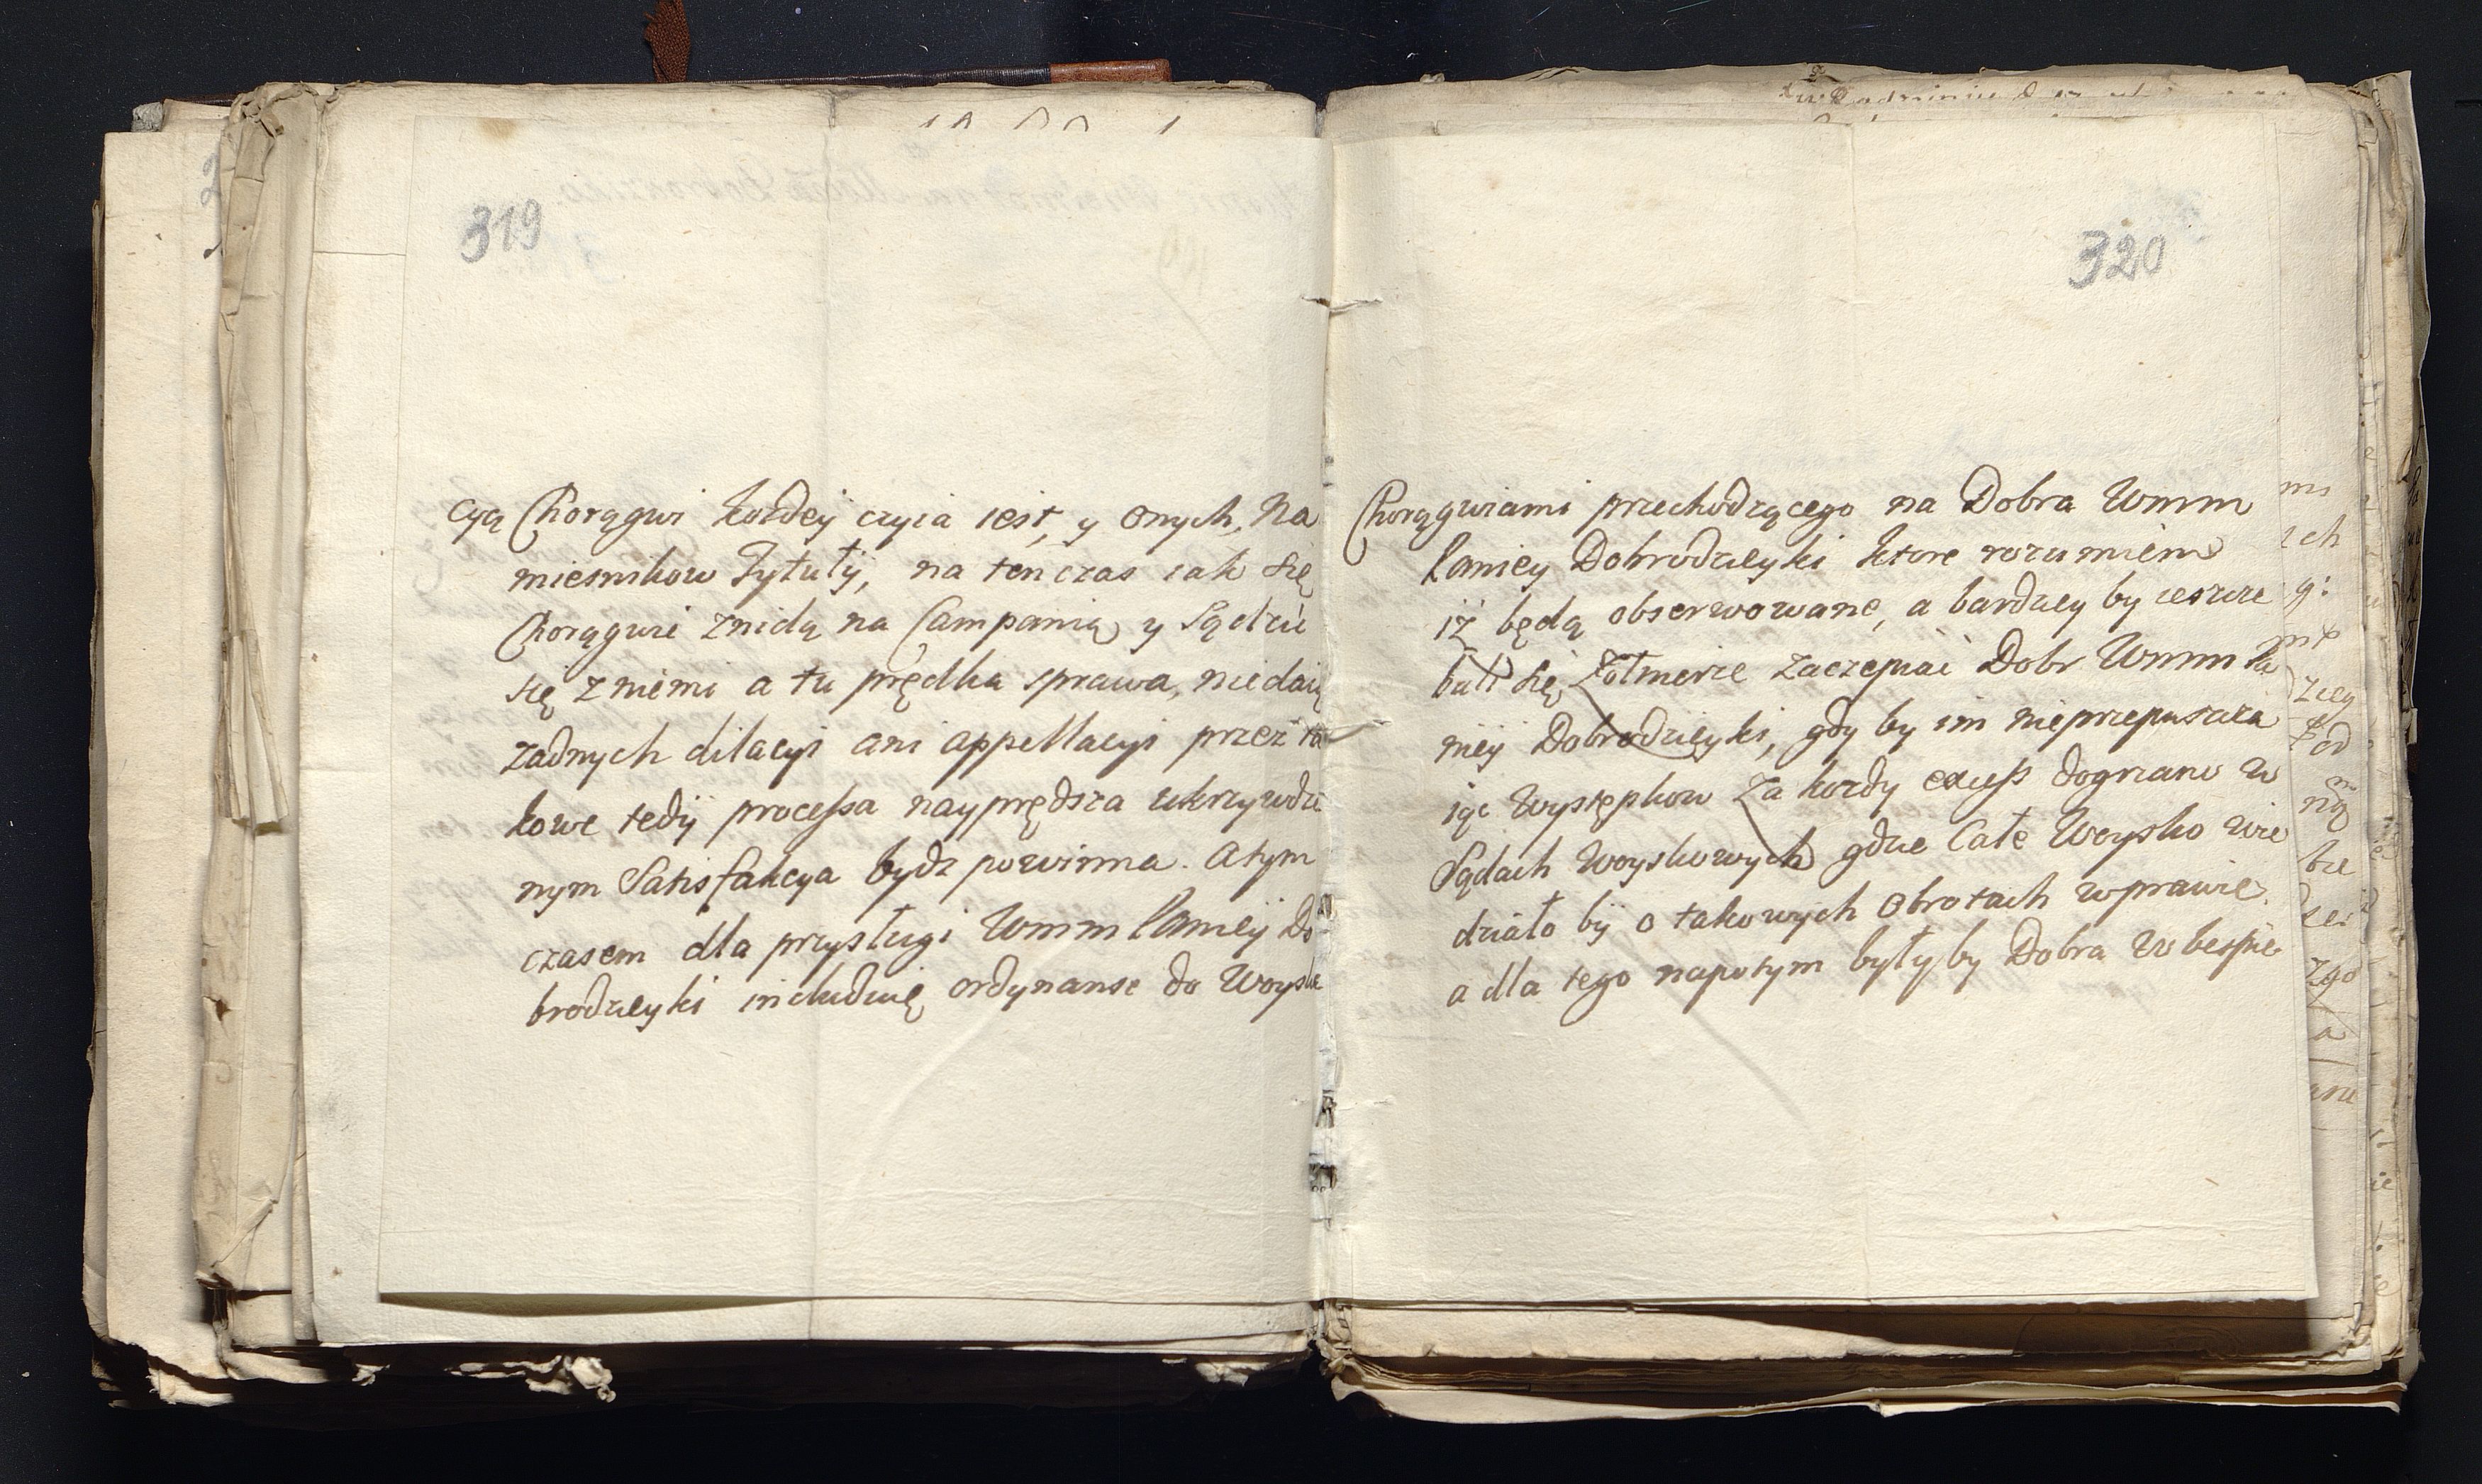 319
cyą Chorągwi kożdey czyia iest, y onych, Na
miesnikow Tytuły, na ten czas iak się
Chorągwie znidą na Campanią y Sądzić
się zniemi a tu prędka sprawa, niedaią
żadnych dilacyi ani appellacyi przez ta
kowe tedy processa nayprędsza ukrzywdzo
nym Satisfakcya bydz powinna. Atym
czasem dla przysługi Wmm Paniey Do
brodzieyki includuię ordynanse do Woyska
320
Chorągwiami przechodzącego na Dobra Wmm
Paniey Dobrodzieyki ktore rozumiem
iż będą obserwowane, a bardziey by ieszcze
bali się Żołnierze zaczepiać Dobr Wmm Pa
niey Dobrodzieyki, gdy by im nieprzepuszcza
iąc Występkow za kożdy excess dogrzano w
Sądach Woyskowych gdzie Całe Woysko wie
działo by o takowych Obrotach wprawie
a dla tego napotym były by Dobra w bespie